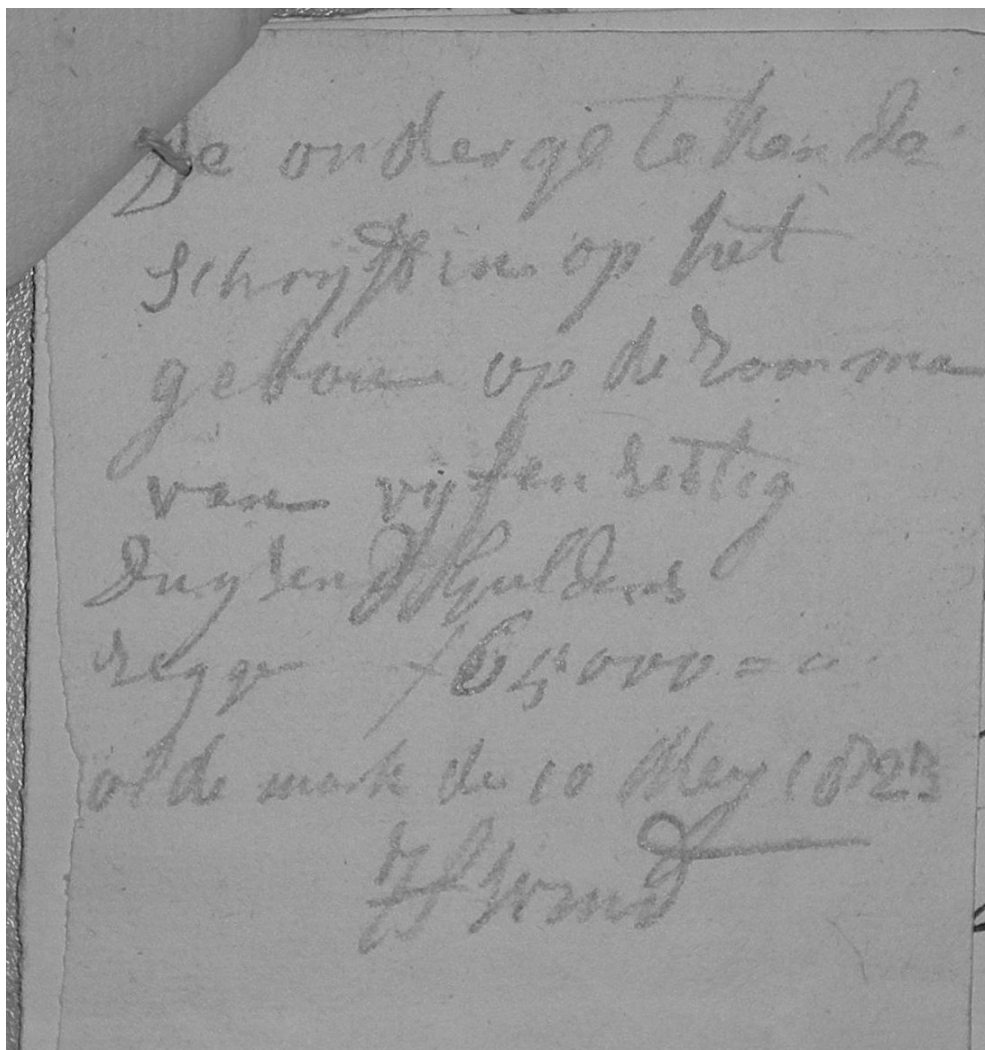 De ondergetekende
Schryft in op het
gebou op de zomma
van vyfenzestig
Duyzend Guldens
zegge f 65000 = 0
olde mark de 10 Mey 1823